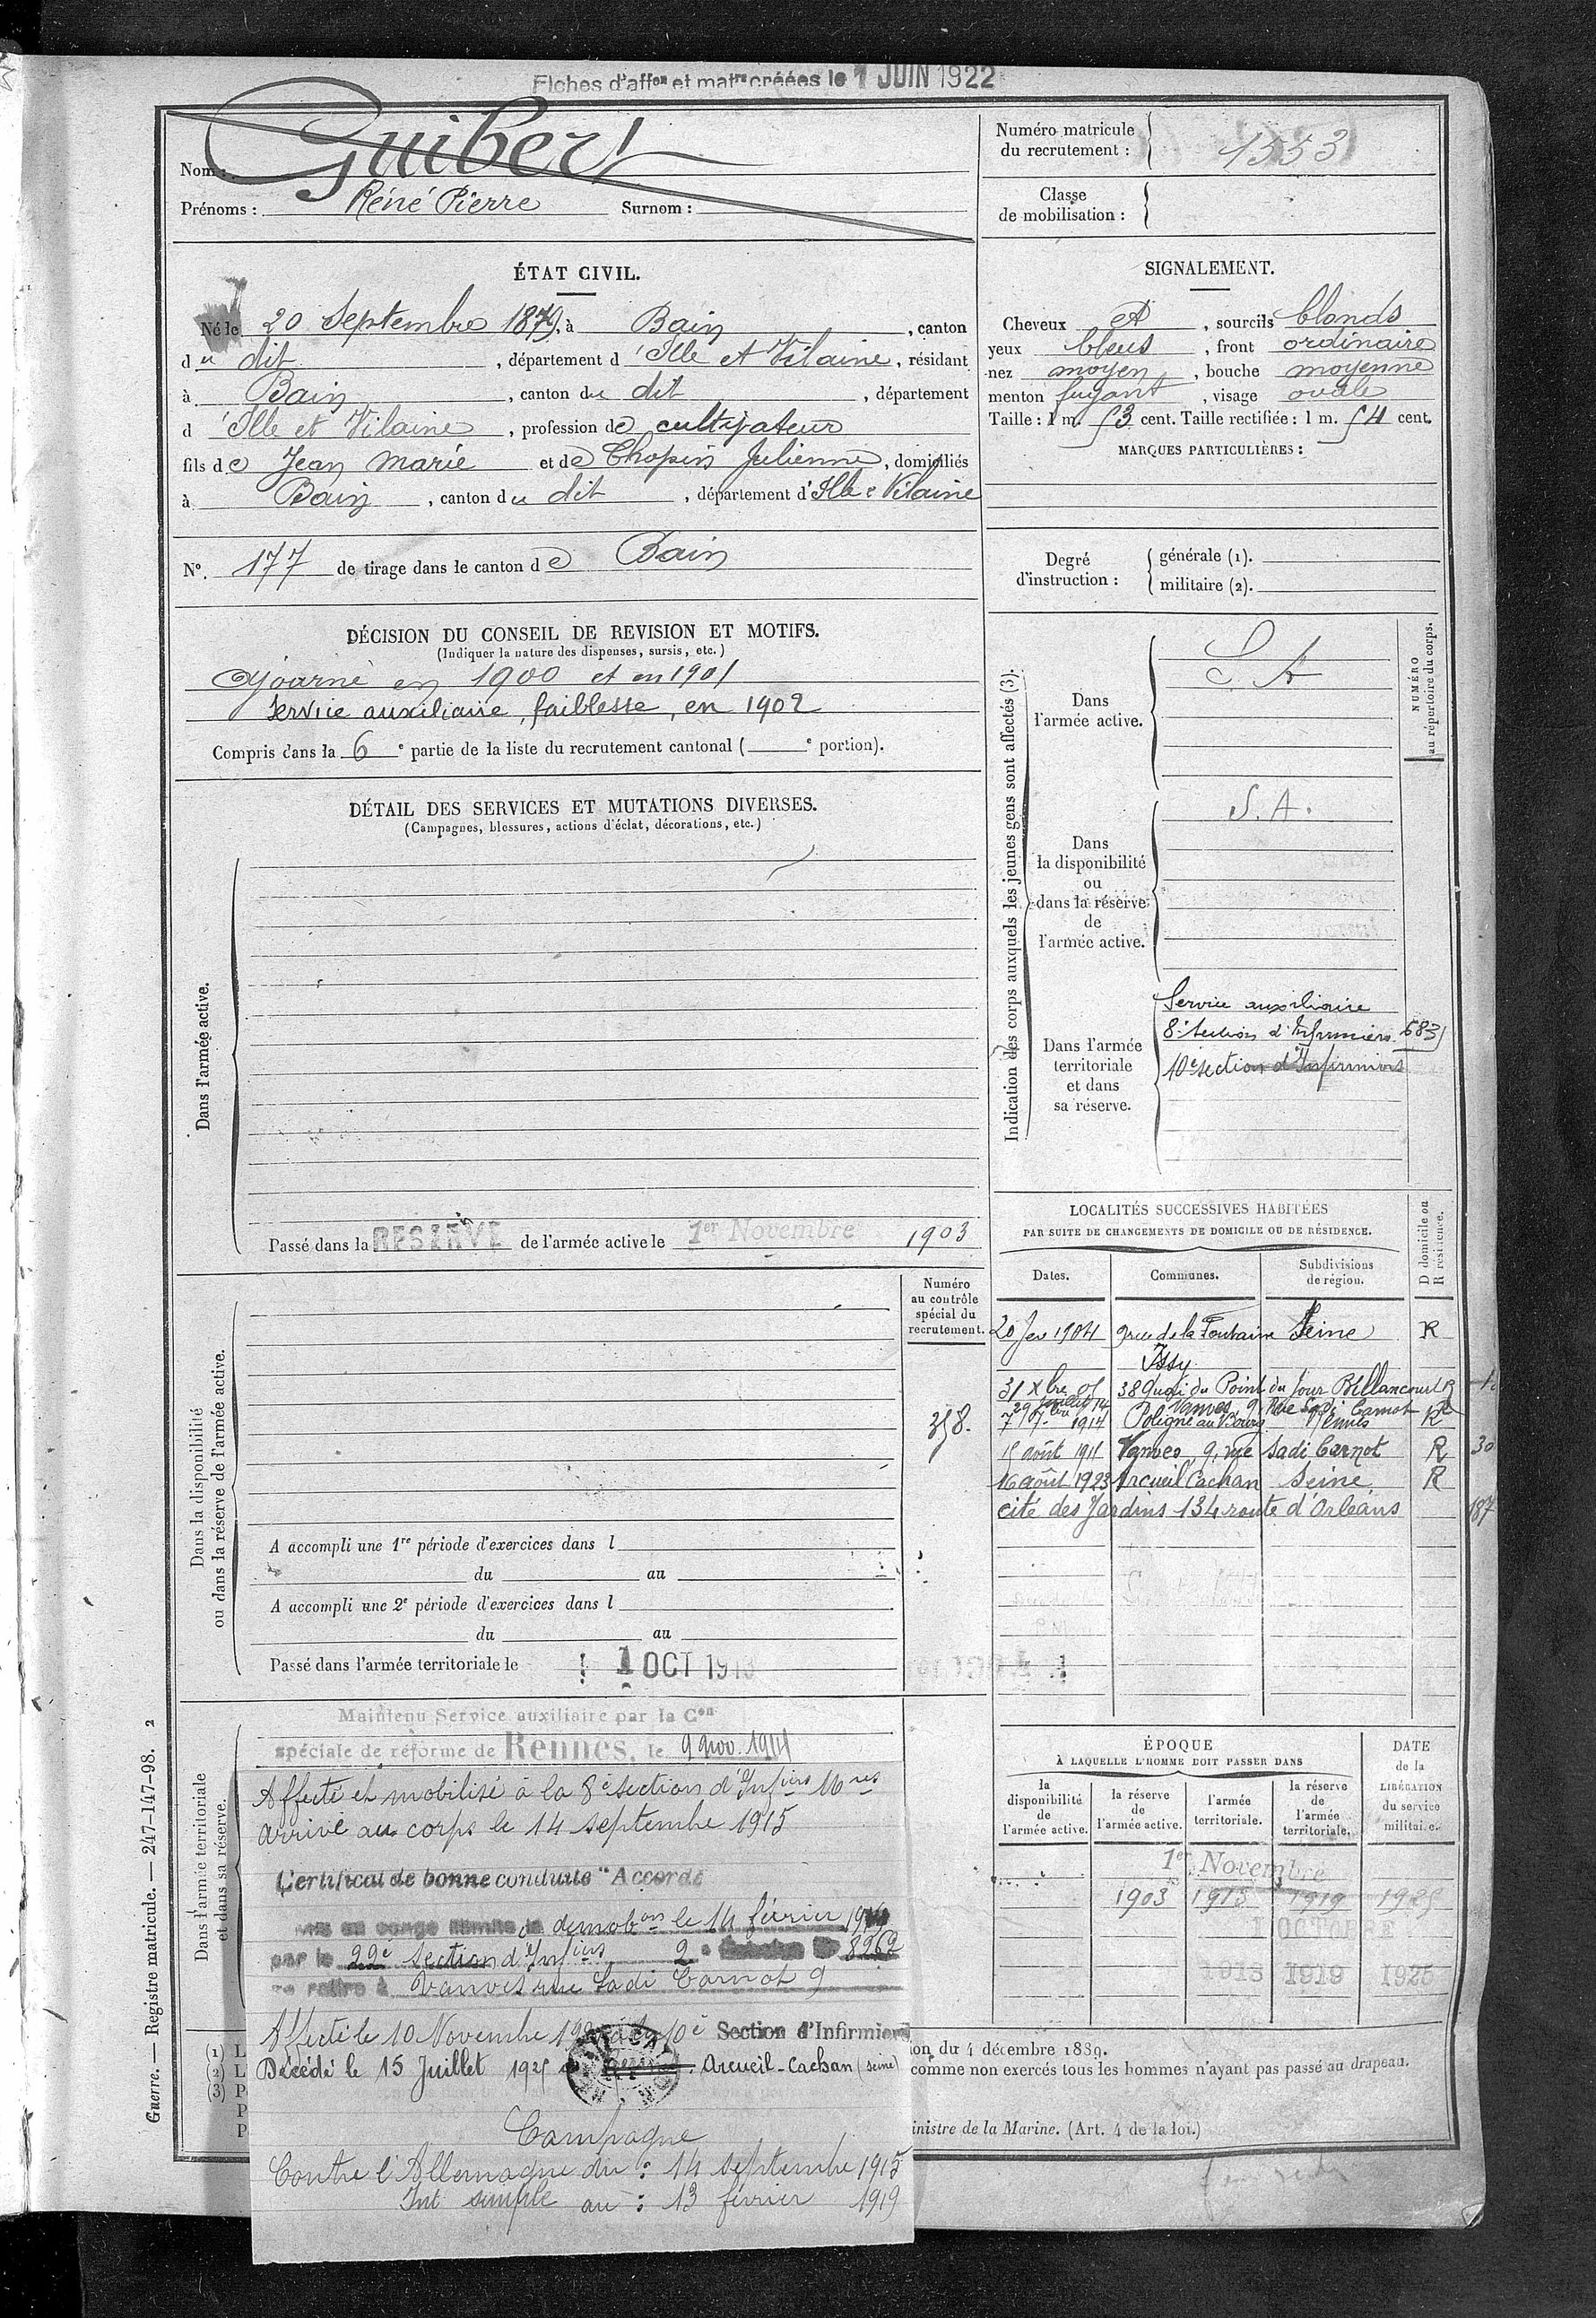 Fiches d'affon et matre créées le 1 JUIN 1922
Nom : Guibert
Prénoms : René Pierre Surnom :
Numéro matricule
du recrutement : 1553
Classe
de mobilisation :
ÉTAT CIVIL.
Né le 20 Septembre 1879, à Bain, canton
du dit, département d'Ille et Vilaine, résidant
à Bain, canton du dit, département
d'Ille et Vilaine, profession de cultivateur
fils de Jean Marie et de Chopin Julienne, domiciliés
à Bain, canton du dit, département d'Ille & Vilaine
N°. 177 de tirage dans le canton de Bain
SIGNALEMENT.
Cheveux et, sourcils blonds
yeux bleus, front ordinaire
nez moyen, bouche moyenne
menton fuyant, visage ovale
Taille : 1 m. 53 cent. Taille rectifiée : 1 m. 54 cent.
MARQUES PARTICULIÈRES :
Degré
d'instruction :
générale (1).
militaire (2).
DÉCISION DU CONSEIL DE REVISION ET MOTIFS.
(Indiquer la nature des dispenses, sursis, etc.)
Ajourné en 1900 et en 1901
Service auxiliaire, faiblesse, en 1902
Compris dans la 6e partie de la liste du recrutement cantonal ( e portion).
DÉTAIL DES SERVICES ET MUTATIONS DIVERSES.
(Campagnes, blessures, actions d'éclat, décorations, etc.)
Dans l'armée active.
Passé dans la RESERVE de l'armée active le 1er Novembre 1903
Indication des corps auxquels les jeunes gens sont affectés (3).
NUMÉRO
au répertoire du corps.
Dans
l'armée active.
S A
Dans
la disponibilité
ou
dans la réserve
de
l'armée active.
S. A.
Dans l'armée
territoriale
et dans
sa réserve.
Service auxiliaire
8e Section d'Infirmiers 683
10e section d'Infirmiers
LOCALITÉS SUCCESSIVES HABITÉES
PAR SUITE DE CHANGEMENTS DE DOMICILE OU DE RÉSIDENCE.
Dates. Communes. Subdivisions
de région. D domicile ou
R résidence.
20 Jer 1904 9 rue de la Fontaine Seine R
Issy
31 Xbre 05 38 Quai du Point du Jour Billancourt R
29 Juillet 14 Vanves 9 Rue Sadi Carnot R
1914 Poligné au Bourg Rennes R
15 août 1915 Vanves, 9, rue Sadi Carnot R 30
16 août 1923 Arcueil Cachan Seine R
cité des Jardins 134 route d'Orléans 187
Dans la disponibilité
ou dans la réserve de l'armée active.
Numéro
au contrôle
spécial du
recrutement.
358.
A accompli une 1re période d'exercices dans l
du au
A accompli une 2e période d'exercices dans l
du au
Passé dans l'armée territoriale le 1 OCT 1913
Dans l'armée territoriale
et dans sa réserve.
Maintenu Service auxiliaire par la Con
spéciale de réforme de Rennes, le 9 Nov. 1914
Affecté et mobilisé à la 8e section d'Infiers Mres
arrivé au corps le 14 septembre 1915
Certificat de bonne conduite "Accordé
mis en congé illimité de démobon le 14 février 1919
par le 22e Section d'Infiers 8262
se retire à Vanves rue Sadi Carnot 9
Affecté le 10 Novembre 10e Section d'Infirmiers
Décédé le 15 Juillet 1925 Arcueil-Cachan (Seine)
Campagne
Contre l'Allemagne du : 14 septembre 1915
Int simple au : 13 février 1919
ÉPOQUE
À LAQUELLE L'HOMME DOIT PASSER DANS
DATE
de la
LIBÉRATION
du service
militaire.
la
disponibilité
de
l'armée active.
la réserve
de
l'armée active.
l'armée
territoriale.
la réserve
de
l'armée
territoriale.
1er Novembre
1903 1913 1919 1925
1 OCTOBRE
1913 1919 1925
(1) L
(2) L
(3) P
P
P
ion du 4 décembre 1889.
comme non exercés tous les hommes n'ayant pas passé au drapeau.
inistre de la Marine. (Art. 4 de la loi.)
Guerre. — Registre matricule. — 247-147-98. 2